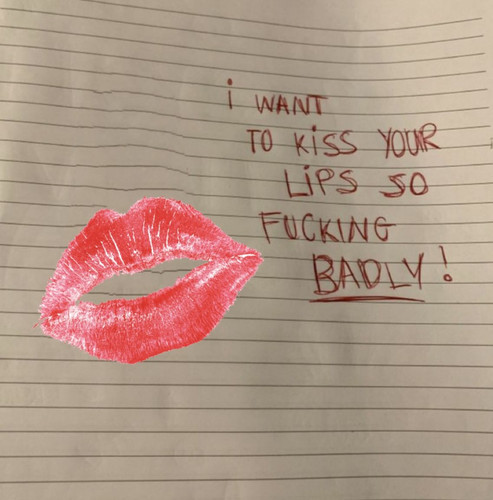 i WANT
TO KiSS YOUR
LiPS SO
FUCKING
BADLY!